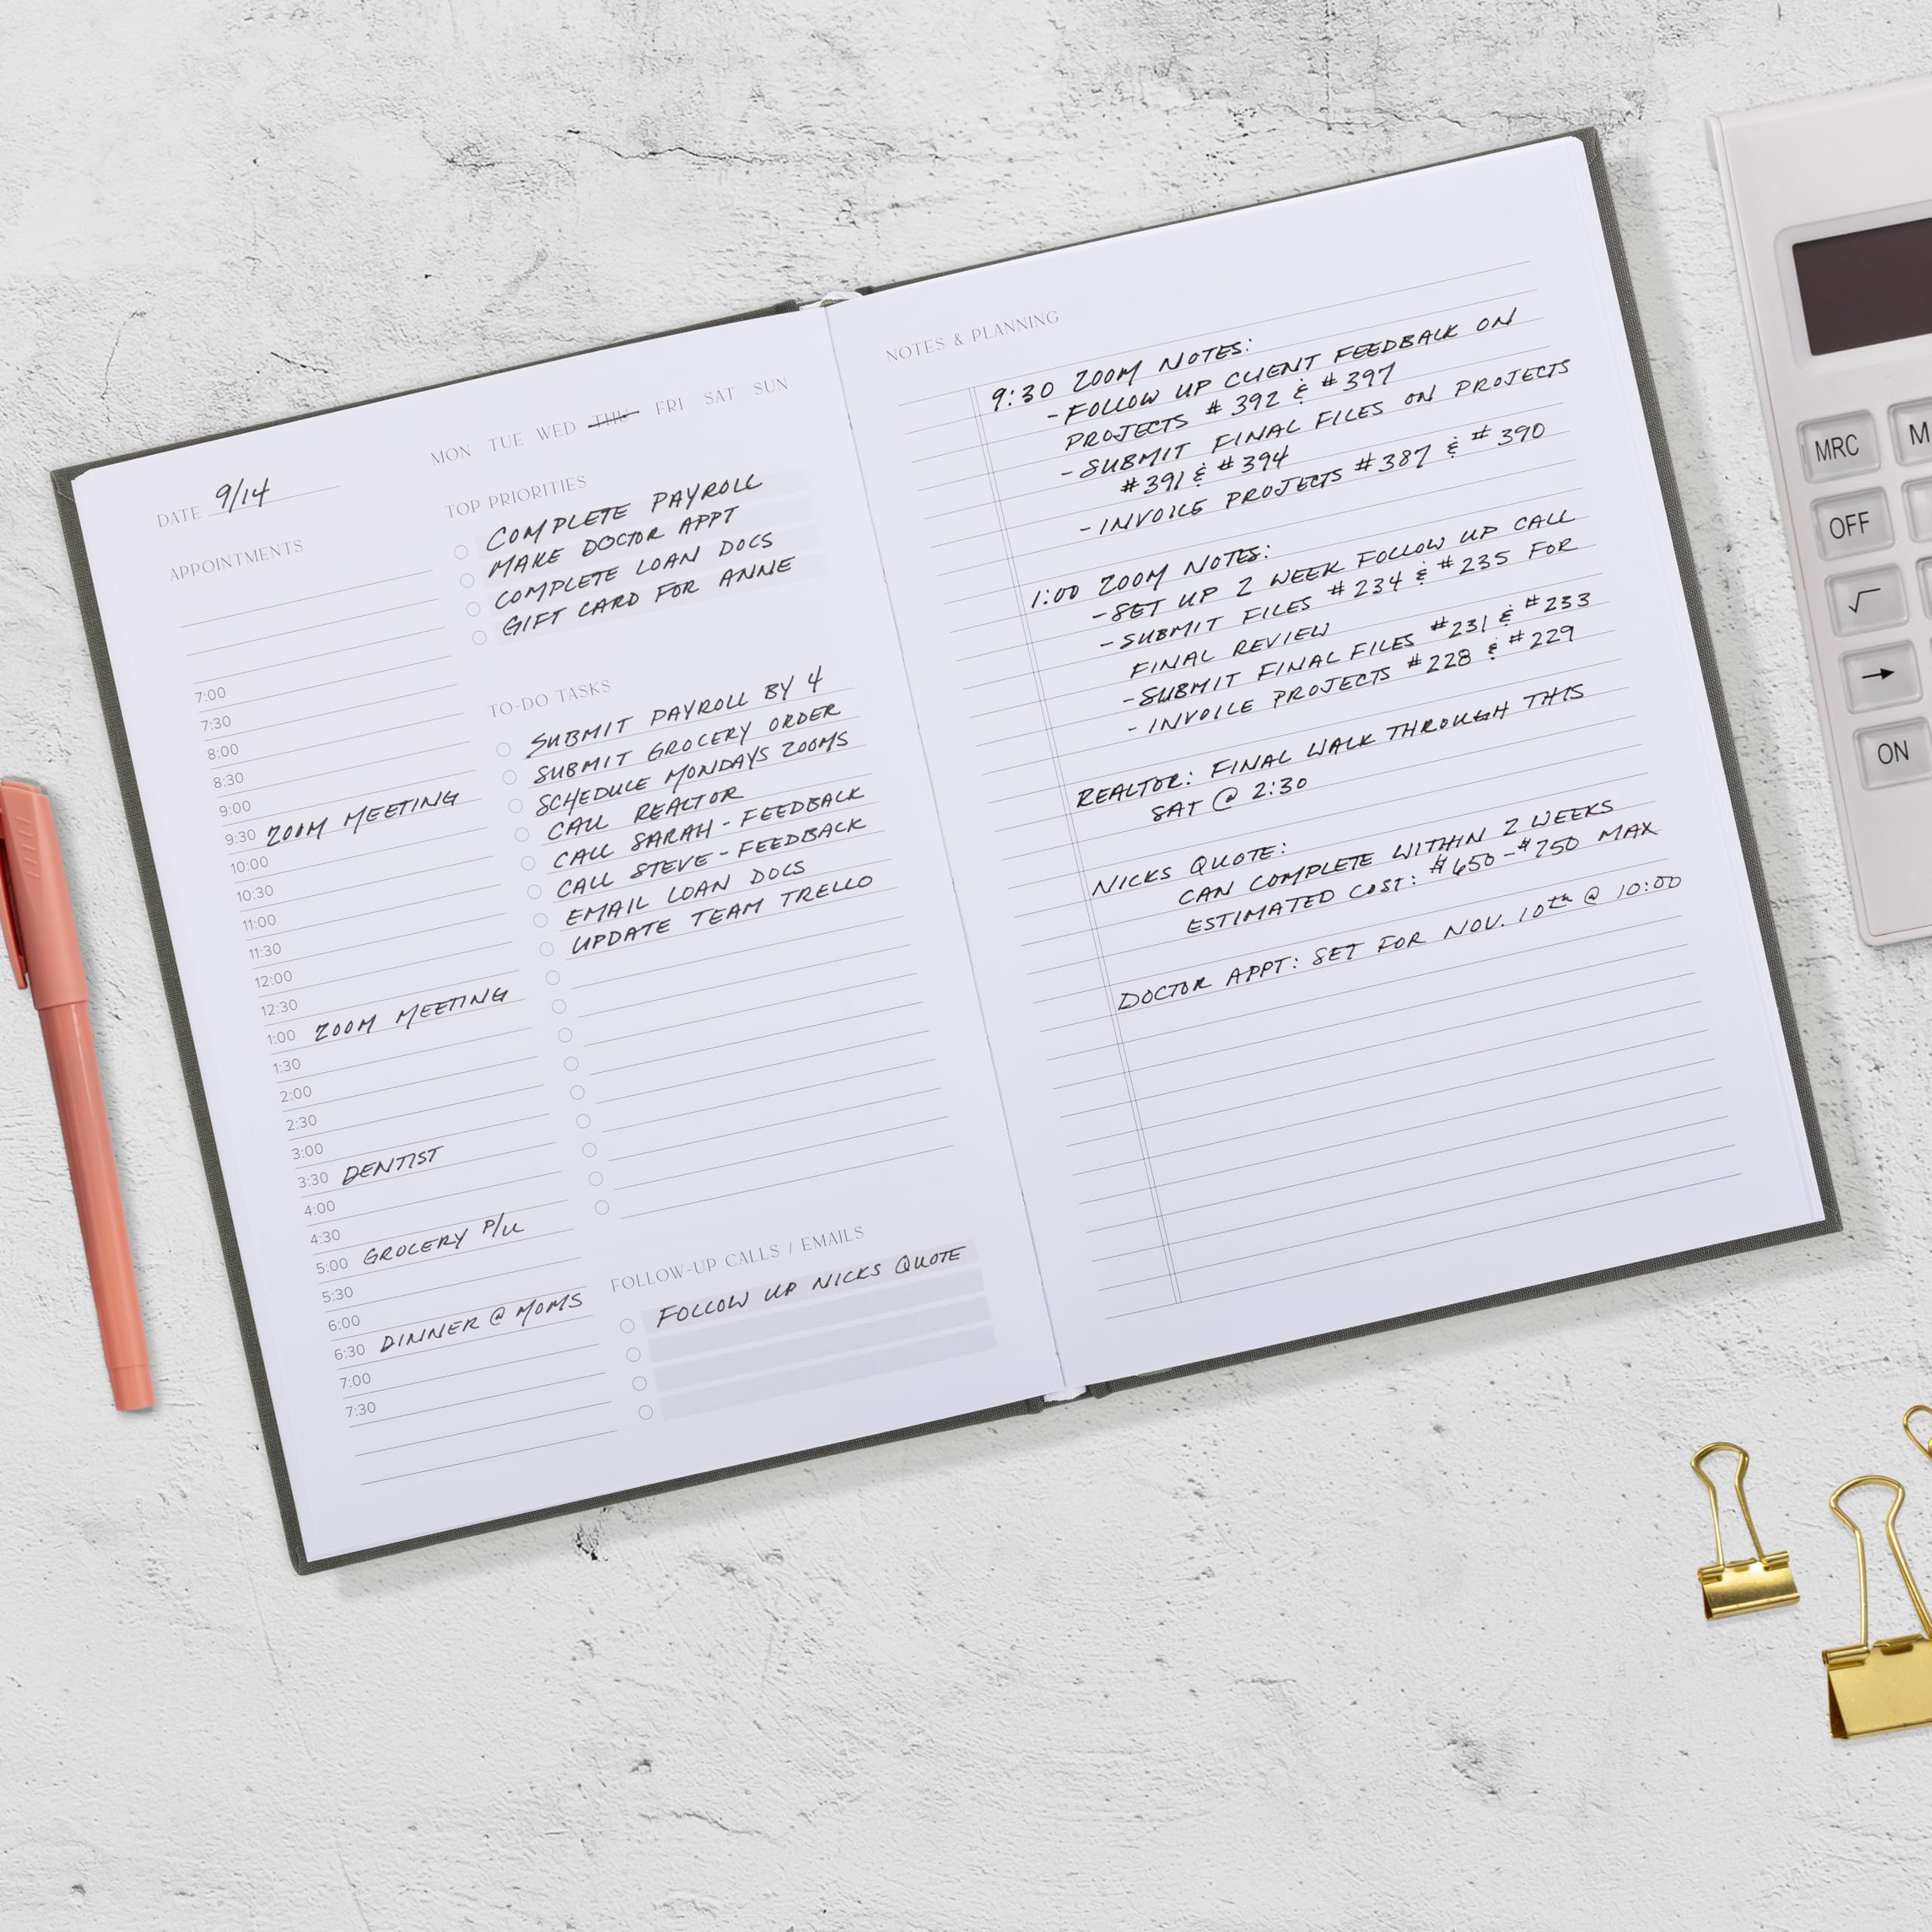 MON TUE WED THU FRI SAT SUN
DATE 9/14
APPOINTMENTS
7:00
7:30
8:00
8:30
9:00
9:30 ZOOM MEETING
10:00
10:30
11:00
11:30
12:00
12:30
1:00 ZOOM MEETING
1:30
2:00
2:30
3:00
3:30 DENTIST
4:00
4:30
5:00 GROCERY P/U
5:30
6:00
6:30 DINNER @ MOMS
7:00
7:30
TOP PRIORITIES
COMPLETE PAYROLL
MAKE DOCTOR APPT
COMPLETE LOAN DOCS
GIFT CARD FOR ANNE
TO-DO TASKS
SUBMIT PAYROLL BY 4
SUBMIT GROCERY ORDER
SCHEDULE MONDAYS ZOOMS
CALL REALTOR
CALL SARAH - FEEDBACK
CALL STEVE - FEEDBACK
EMAIL LOAN DOCS
UPDATE TEAM TRELLO
FOLLOW-UP CALLS / EMAILS
FOLLOW UP NICKS QUOTE
NOTES & PLANNING
9:30 ZOOM NOTES:
- FOLLOW UP CLIENT FEEDBACK ON
PROJECTS #392 & #397
- SUBMIT FINAL FILES ON PROJECTS
#391 & #394
- INVOICE PROJECTS #387 & #390
1:00 ZOOM NOTES:
- SET UP 2 WEEK FOLLOW UP CALL
- SUBMIT FILES #234 & #235 FOR
FINAL REVIEW
- SUBMIT FINAL FILES #231 & #233
- INVOICE PROJECTS #228 & #229
REALTOR: FINAL WALK THROUGH THIS
SAT @ 2:30
NICKS QUOTE:
CAN COMPLETE WITHIN 2 WEEKS
ESTIMATED COST: $650-$750 MAX
DOCTOR APPT: SET FOR NOV. 10th @ 10:00
MRC
OFF
√
→
ON